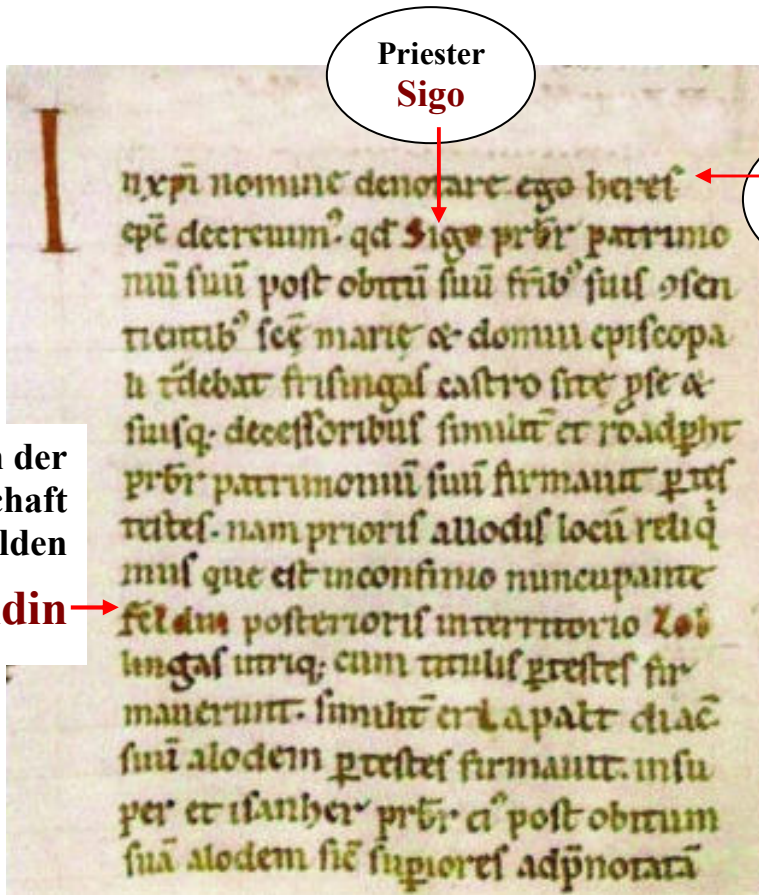 Priester
Sigo
I
nxpi nomine denotare ego heres
epc decreuim' qd Sigo prbr patrimo
niū suū post obitū suū frib' suis ꝯsen
tientib' scę marię & domui episcopa
li tdebat frisingas castro site ꝓse &
suisq; decessoribus similit et roadpht
prbr patrimoniū suū firmauit ꝑtes
testes. nam prioris allodis locū reliq
mus que est inconfinio nuncupante
feldin posterioris interritorio Zol
lingas utriq; cum titulis ꝑtestes fir
mauerunt. similit erlapalt diac
suū alodem ꝑtestes firmauit. insu
per et isanher prbr ei' post obitum
suā alodem sic supiores adpnotatā
n der
chaft
lden
din